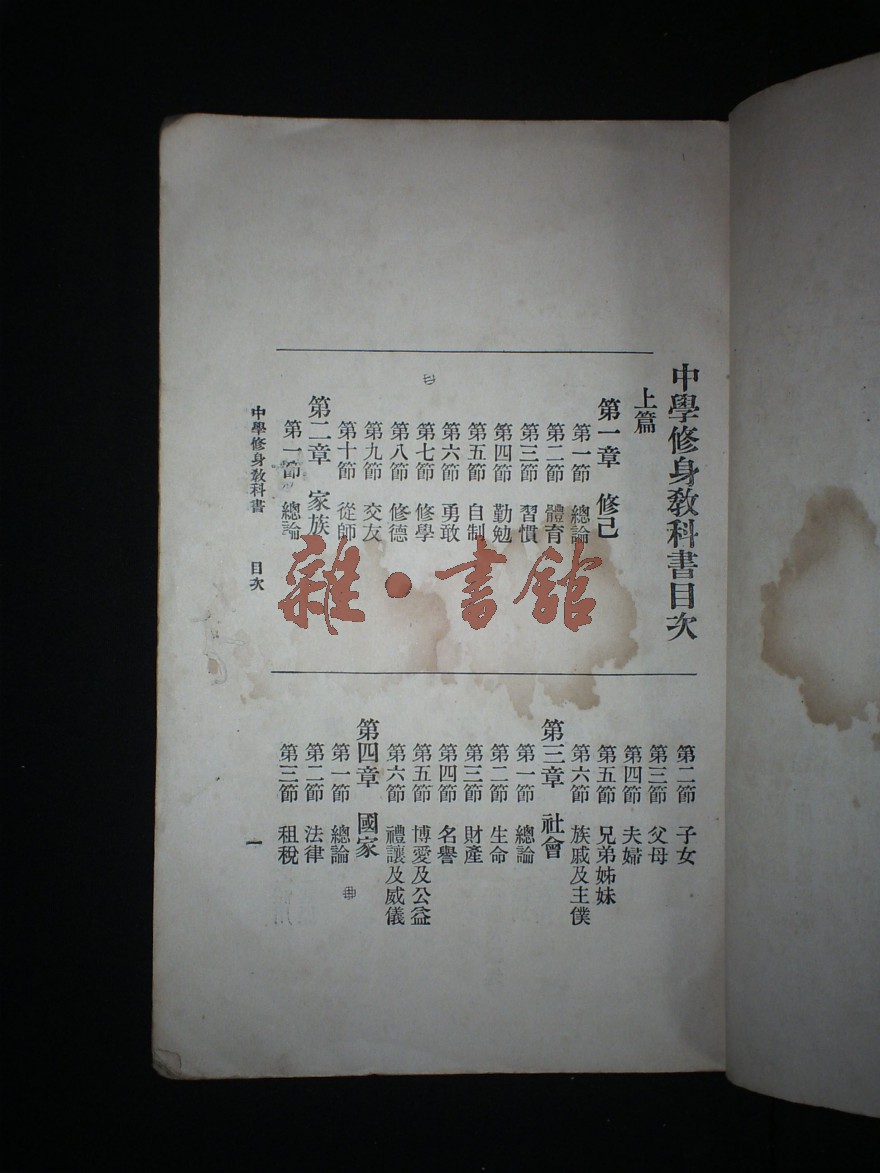 中學修身教科書目次
上篇
第一章　修己
第一節　總論
第二節　體育
第三節　習慣
第四節　勤勉
第五節　自制
第六節　勇敢
第七節　修學
第八節　修德
第九節　交友
第十節　從師
第二章　家族
第一節　總論
第二節　子女
第三節　父母
第四節　夫婦
第五節　兄弟姊妹
第六節　族戚及主僕
第三章　社會
第一節　總論
第二節　生命
第三節　財產
第四節　名譽
第五節　博愛及公益
第六節　禮讓及威儀
第四章　國家
第一節　總論
第二節　法律
第三節　租稅
中學修身教科書　目次　一
雜·書館